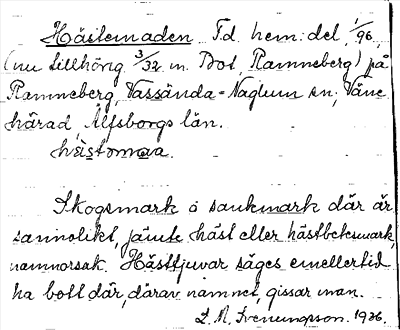 Hästemaden T.d. hem: del, 1/96,
(nu tillhörig 3/32 m. Bot. Ramneberg) på
Ramneberg, Vassända-Naglum sn; Väne
härad, Älfsborgs län.
hästomaa.
Skogsmark o sankmark där är
sannolikt, jämte häst eller hästbetesmark,
namnorsak. Hästtjuvar säges emellertid
ha bott där, därav namnet, gissar man.
L. M. Svenungsson. 1936.